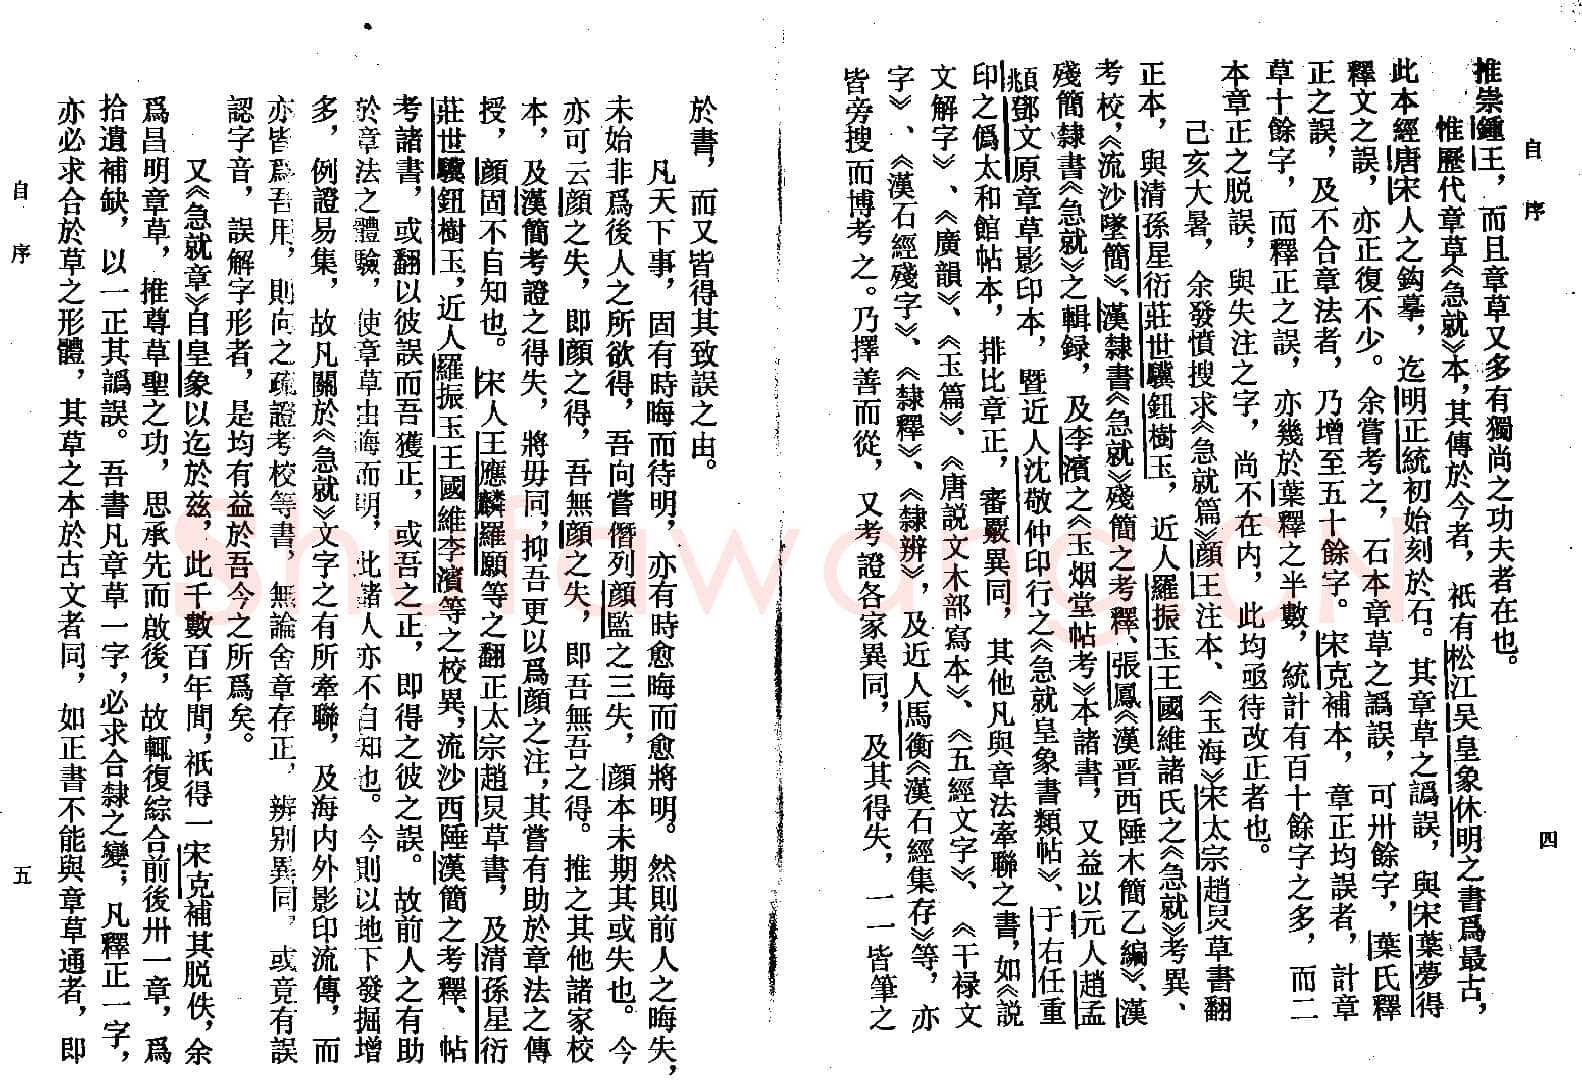 自序
四
推崇鍾王，而且章草又多有獨尚之功夫者在也。
惟歷代章草《急就》本，其傳於今者，祇有松江吴皇象休明之書爲最古，
此本經唐宋人之鈎摹，迄明正統初始刻於石。其章草之譌誤，與宋葉夢得
釋文之誤，亦正復不少。余嘗考之，石本章草之譌誤，可卅餘字，葉氏釋
正之誤，及不合章法者，乃增至五十餘字。宋克補本，章正均誤者，計章
草十餘字，而釋正之誤，亦幾於葉釋之半數，統計有百十餘字之多，而二
本章正之脱誤，與失注之字，尚不在内，此均亟待改正者也。
己亥大暑，余發憤搜求《急就篇》顔王注本、《玉海》宋太宗趙炅草書翻
正本，與清孫星衍莊世驥鈕樹玉，近人羅振玉王國維諸氏之《急就》考異、
考校，《流沙墜簡》、漢隸書《急就》殘簡之考釋、張鳳《漢晋西陲木簡乙編》、漢
殘簡隸書《急就》之輯録，及李濱之《玉烟堂帖考》本諸書，又益以元人趙孟
頫鄧文原章草影印本，暨近人沈敬仲印行之《急就皇象書類帖》、于右任重
印之僞太和館帖本，排比章正，審覈異同，其他凡與章法牽聯之書，如《説
文解字》、《廣韻》、《玉篇》、《唐説文木部寫本》、《五經文字》、《干禄文
字》、《漢石經殘字》、《隸釋》、《隸辨》，及近人馬衡《漢石經集存》等，亦
皆旁搜而博考之。乃擇善而從，又考證各家異同，及其得失，一一皆筆之
於書，而又皆得其致誤之由。
凡天下事，固有時晦而待明，亦有時愈晦而愈將明。然則前人之晦失，
未始非爲後人之所欲得，吾向嘗僭列顔監之三失，顔本未期其或失也。今
亦可云顔之失，即顔之得，吾無顔之失，即吾無吾之得。推之其他諸家校
本，及漢簡考證之得失，將毋同，抑吾更以爲顔之注，其嘗有助於章法之傳
授，顔固不自知也。宋人王應麟羅願等之翻正太宗趙炅草書，及清孫星衍
莊世驥鈕樹玉，近人羅振玉王國維李濱等之校異，流沙西陲漢簡之考釋、帖
考諸書，或翻以彼誤而吾獲正，或吾之正，即得之彼之誤。故前人之有助
於章法之體驗，使章草由晦而明，此諸人亦不自知也。今則以地下發掘增
多，例證易集，故凡關於《急就》文字之有所牽聯，及海内外影印流傳，而
亦皆爲吾用，則向之疏證考校等書，無論舍章存正，辨别異同，或竟有誤
認字音，誤解字形者，是均有益於吾今之所爲矣。
又《急就章》自皇象以迄於兹，此千數百年間，祇得一宋克補其脱佚，余
爲昌明章草，推尊草聖之功，思承先而啟後，故輒復綜合前後卅一章，爲
拾遺補缺，以一正其譌誤。吾書凡章草一字，必求合隸之變；凡釋正一字，
亦必求合於草之形體，其草之本於古文者同，如正書不能與章草通者，即
自序
五
Shufawang.CN